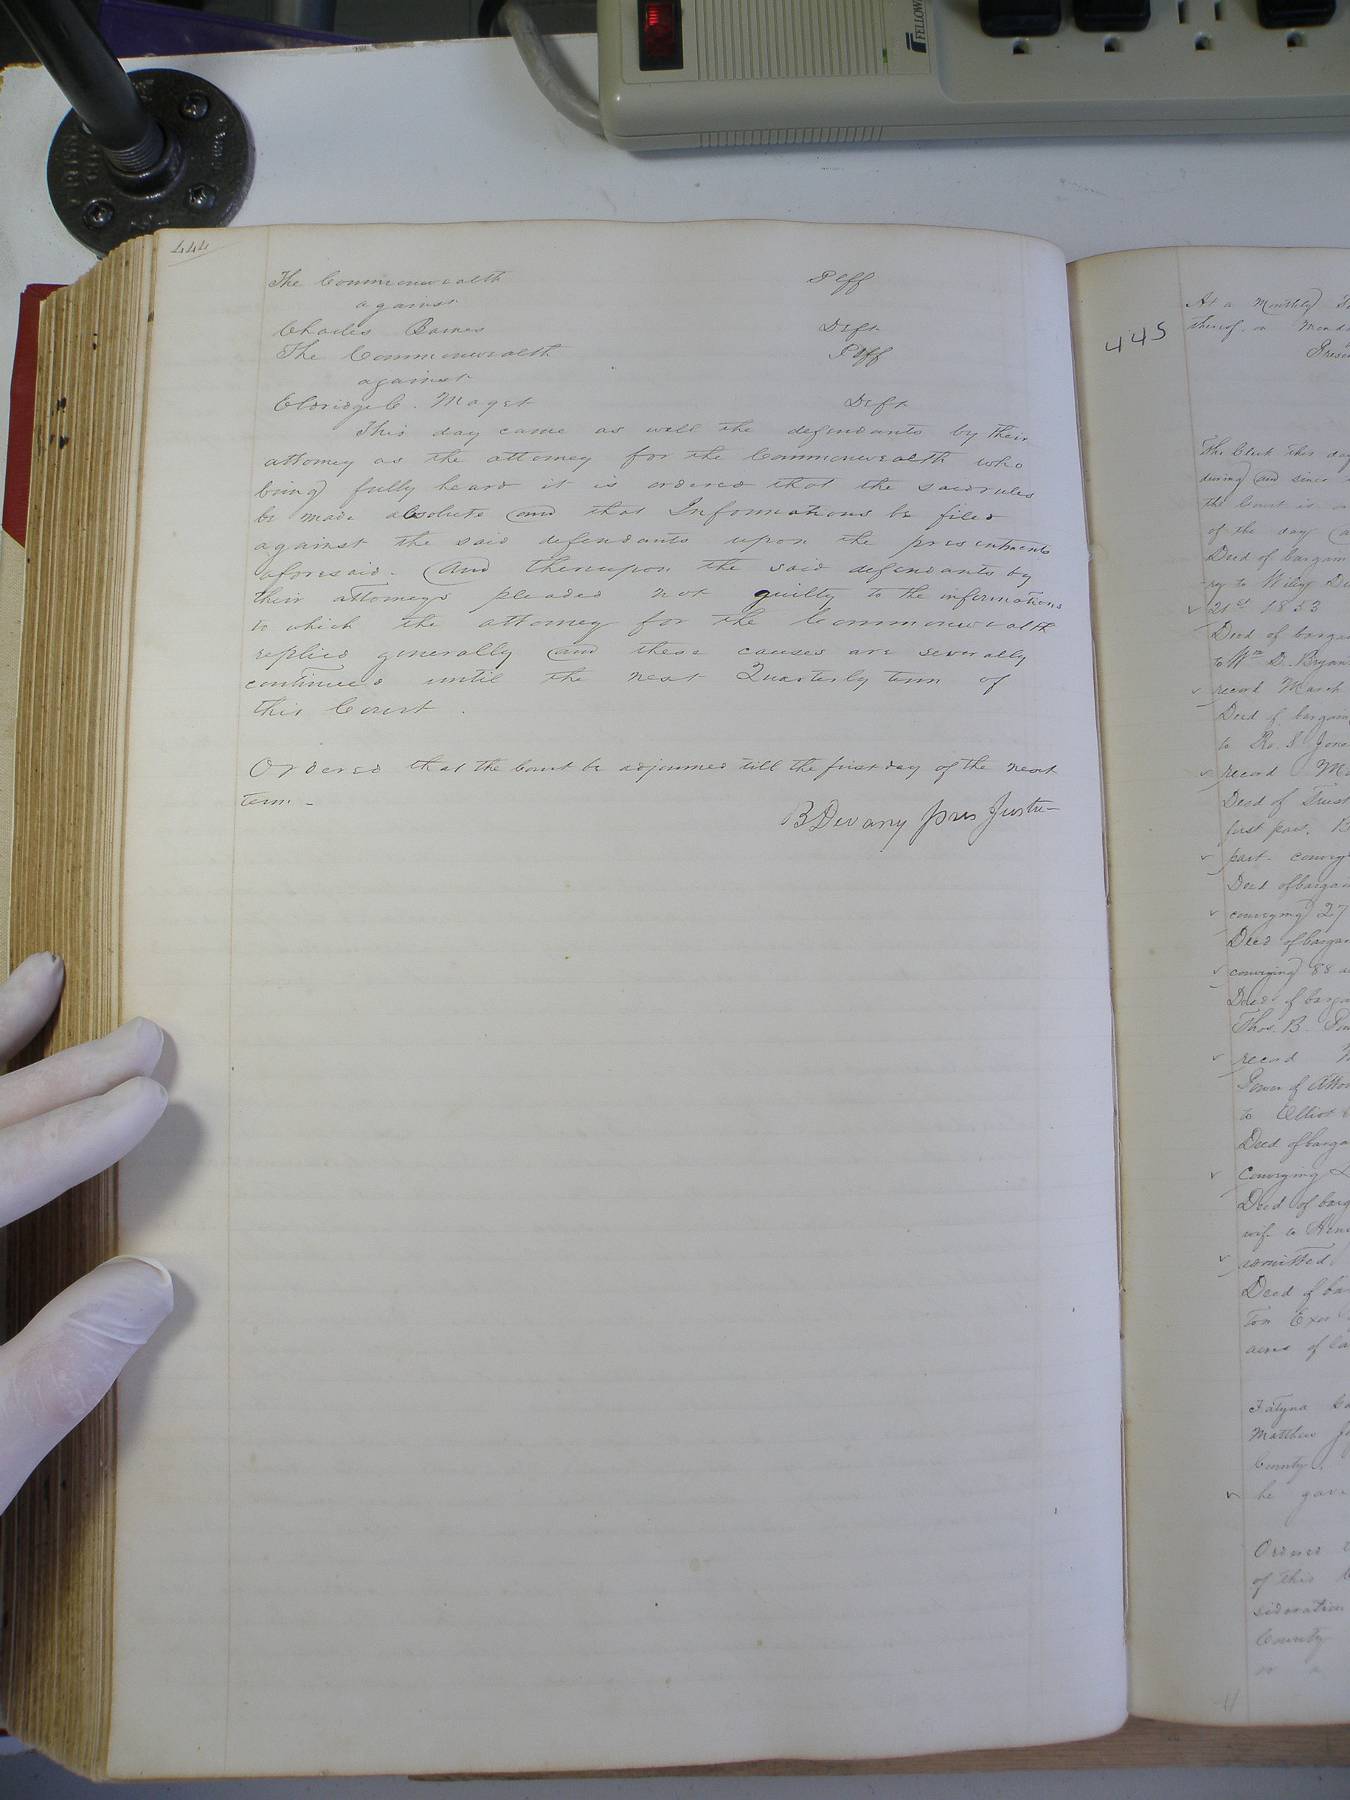 444
The Commonwealth Plff
against
Charles Barnes Deft
The Commonwealth Plff
against
Eldridge C. Maget Deft
This day came as well the defendants by their
attorney as the attorney for the Commonwealth who
being fully heard it is ordered that the said rules
be made absolute and that Informations be filed
against the said defendants upon the presentments
aforesaid. And thereupon the said defendants by
their attorneys pleaded not guilty to the informations
to which the attorney for the Commonwealth
replied generally and these causes are severally
continued until the next Quarterly term of
this Court.
Ordered that the Court be adjourned till the first day of the next
term -
B Devany pres Justice
445
At a Monthly
thereof. on Mond
Prese
The Clerk this day
during and since
the Court is
of the day
Deed of bargain
ry to Wiley
21st 1853
Deed of barga
to Wm D. Bryan
record March
Deed of bargain
to Ro. S. Jone
record Ma
Deed of Trust
first part. B
part. convey
Deed of bargain
conveying 27
Deed of bargai
conveying 88 a
Deed of barga
Thos. B.
record
Power of Atto
to Elliot
Deed of barga
Conveying
Deed of barg
wife to Hen
admitted
Deed of bar
ton Exor
acres of la
Matthew J
County.
he gave
Ordered t
of this
sideration
County
or a
FELLOWE